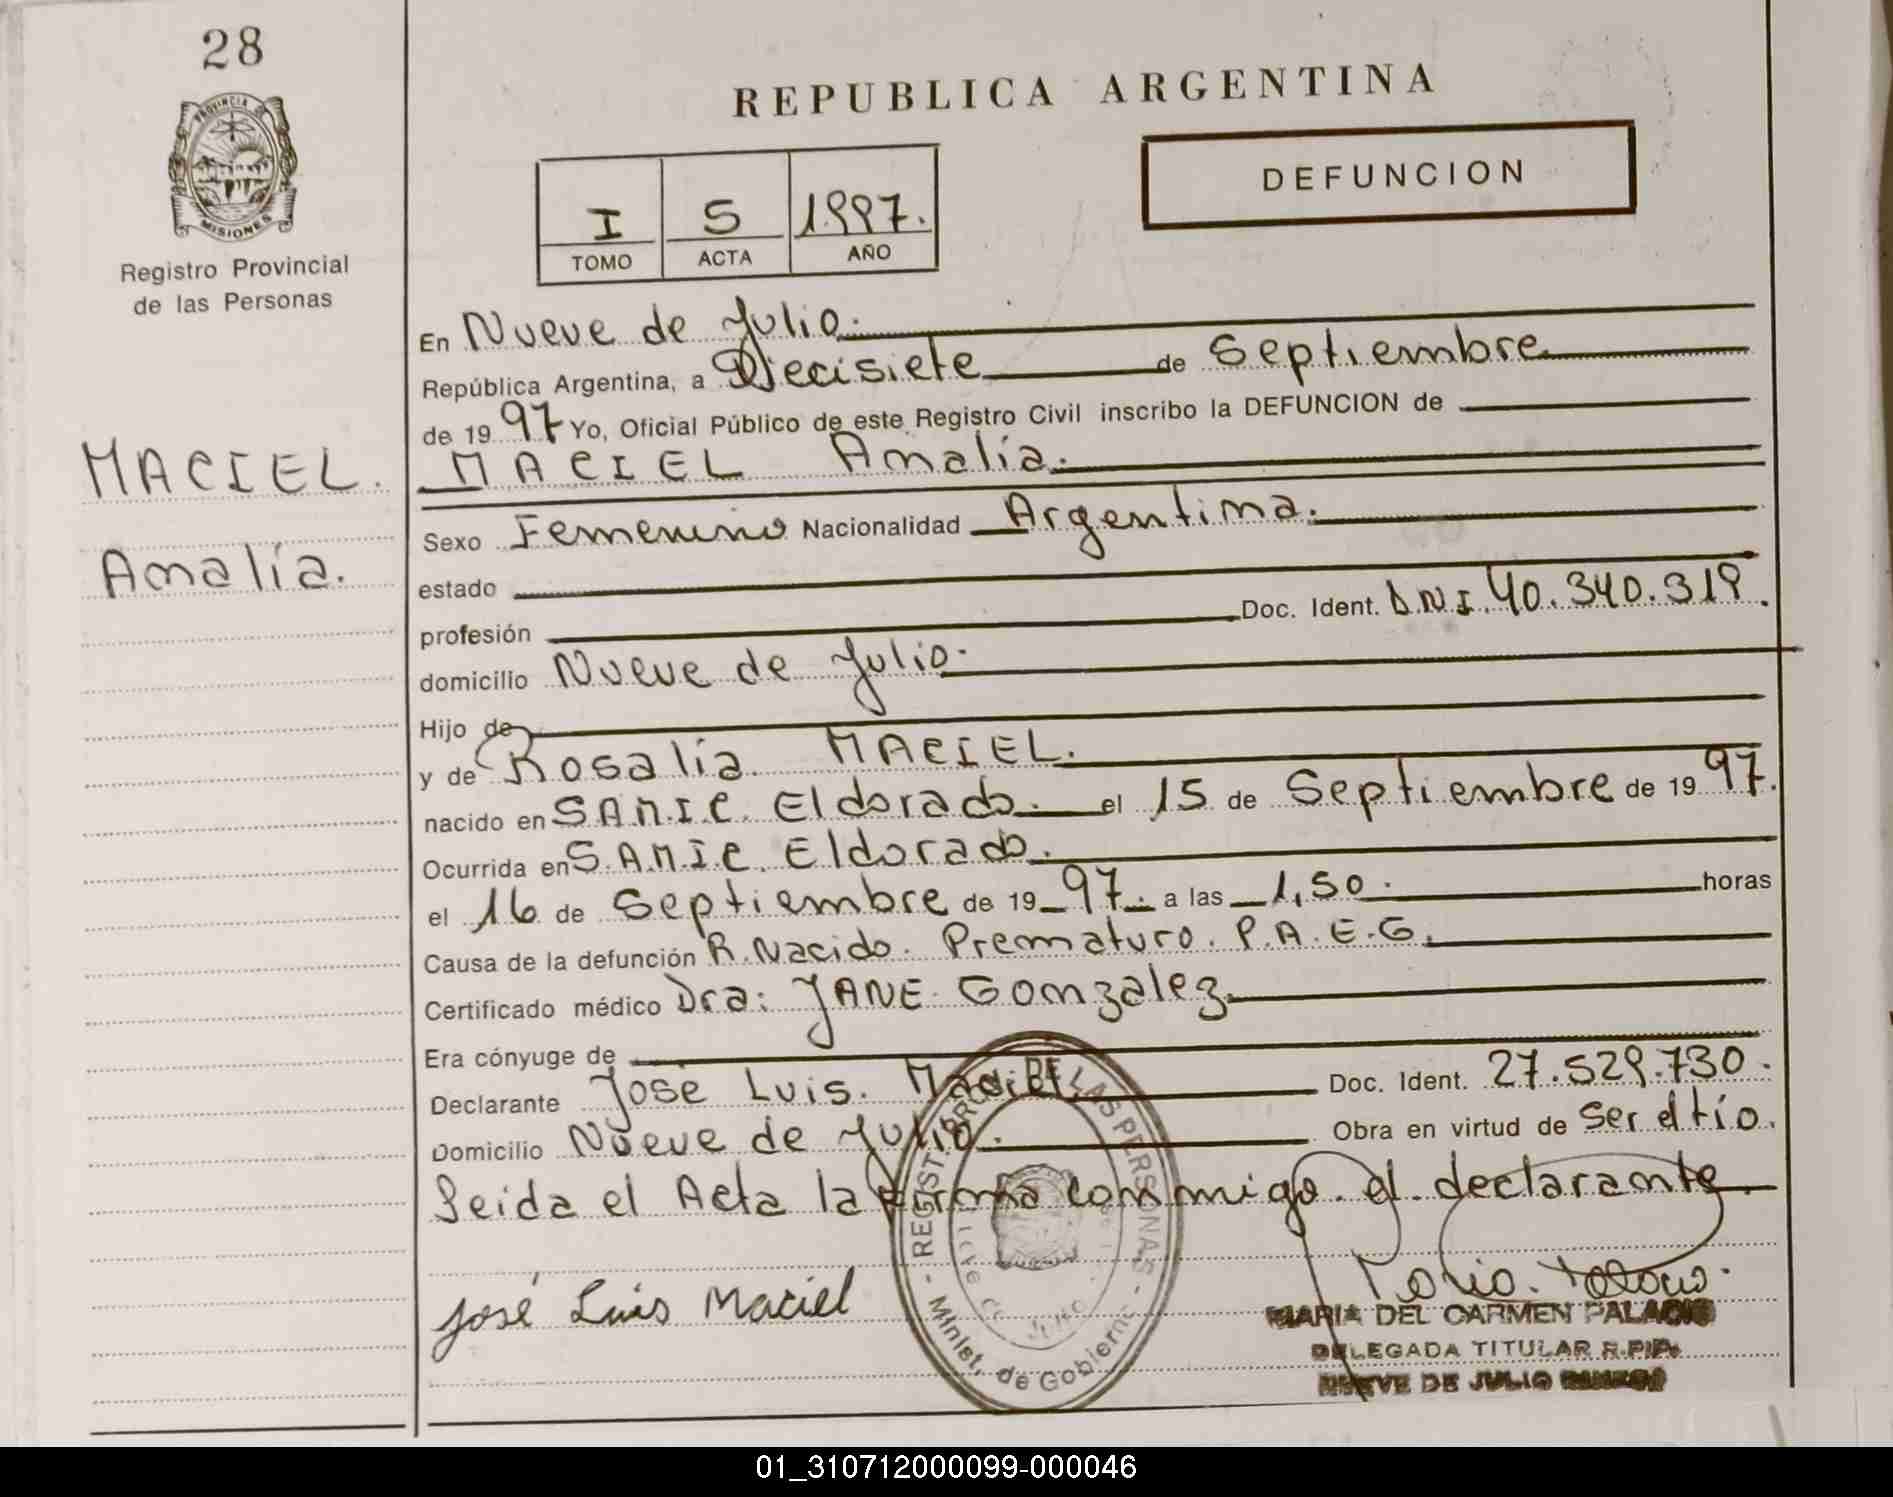 28
PROVINCIA DE
MISIONES
Registro Provincial
de las Personas
MACIEL.
Amalia.
REPUBLICA ARGENTINA
DEFUNCION
I 5 1.997.
TOMO ACTA AÑO
En Nueve de Julio.
República Argentina, a Diecisiete de Septiembre
de 19 97 Yo, Oficial Público de este Registro Civil inscribo la DEFUNCION de
MACIEL Amalia.
Sexo Femenino Nacionalidad Argentina.
estado
profesión Doc. Ident. D.N.I. 40.340.319.
domicilio Nueve de Julio.
Hijo de
y de Rosalia MACIEL.
nacido en S.A.M.I.C. Eldorado. el 15 de Septiembre de 19 97.
Ocurrida en S.A.M.I.C. Eldorado.
el 16 de Septiembre de 19 97. a las 1,50. horas
Causa de la defunción R. Nacido. Prematuro. P.A.E.G.
Certificado médico Dra: JANE Gonzalez
Era cónyuge de
Declarante José Luis. Maciel Doc. Ident. 27.529.730.
Domicilio Nueve de Julio. Obra en virtud de Ser el tío.
Leida el Acta la firma conmigo. el declarante
José Luis Maciel
REGISTRO DE LAS PERSONAS
Minist. de Gobierno
MARIA DEL CARMEN PALACIO
DELEGADA TITULAR R.P.P.
NUEVE DE JULIO
01_310712000099-000046